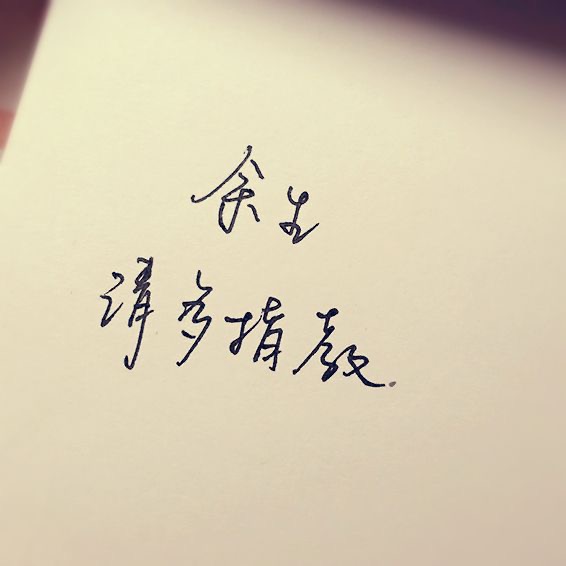 余生
请多指教.